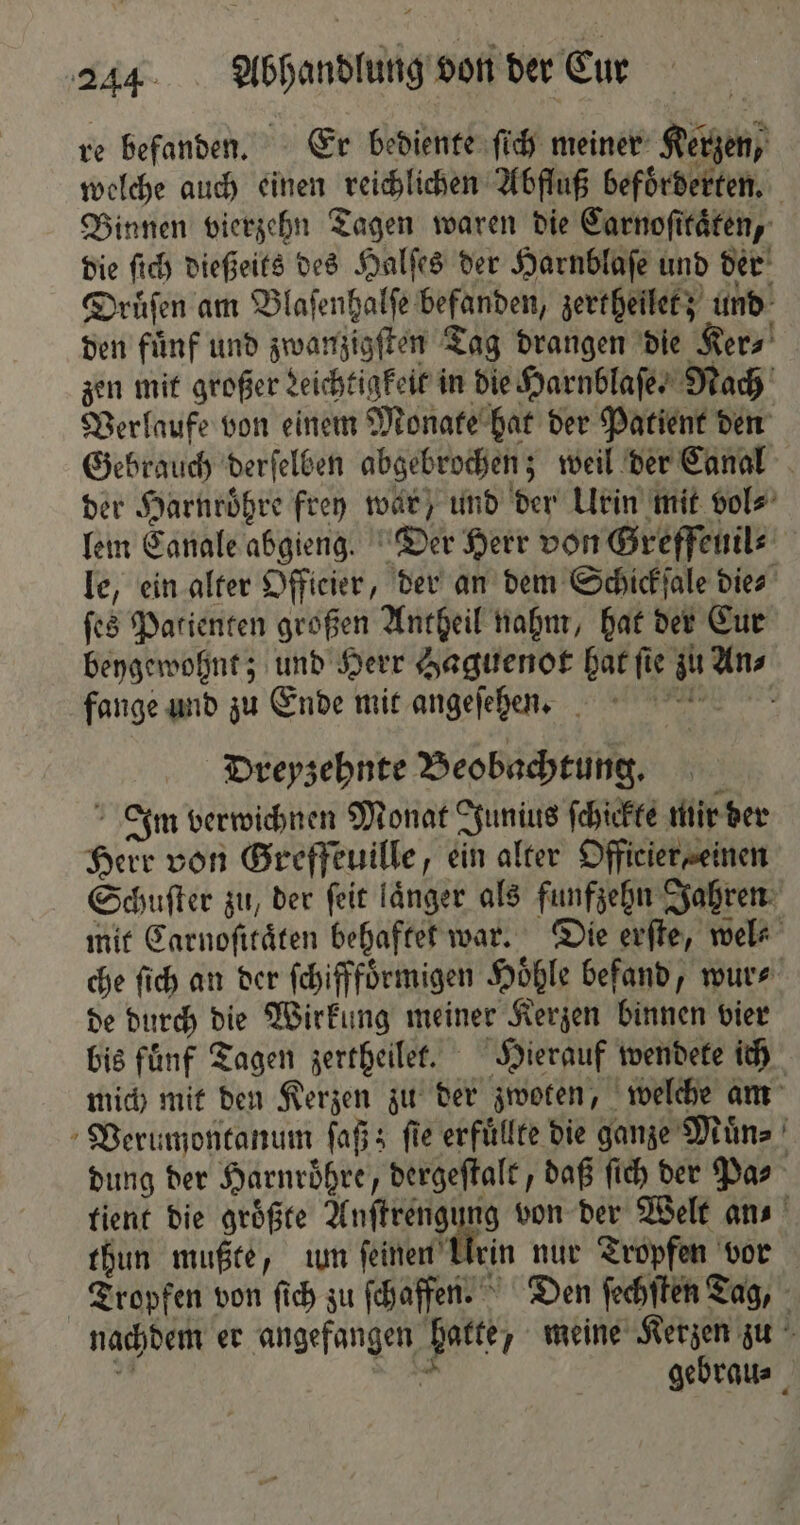 244 Abhandlung von der Cur
re befanden. Er bediente ſich meiner Kerzen,
welche auch einen reichlichen Abfluß befoͤrderten.
Binnen vierzehn Tagen waren die Carnoſitaͤten,
die ſich dießeits des Halſes der Harnblaſe und der
Druͤſen am Blaſenhalſe befanden, zertheilet; und
den fuͤnf und zwanzigſten Tag drangen die Ker⸗
zen mit großer Leichtigkeit in die Harnblaſe. Nach
Verlaufe von einem Monate hat der Patient den
Gebrauch derſelben abgebrochen; weil der Canal
der Harnroͤhre frey war, und der Urin mit vol⸗
lem Canale abgieng. Der Herr von Greffeuil⸗
le, ein alter Officier, der an dem Schickſale die⸗
ſes Patienten großen Antheil nahm, hat der Cur
beygewohnt; und Herr Haguenot hat ſie zu An⸗
fange und zu Ende mit angeſehen.
Dreyzehnte Beobachtung.
Im verwichnen Monat Junius ſchickte mir der
Herr von Greffeuille, ein alter Officier, einen
Schuſter zu, der ſeit laͤnger als funfzehn Jahren
mit Carnoſitaͤten behaftet war. Die erſte, wel⸗
che ſich an der ſchifffoͤrmigen Hoͤhle befand, wur⸗
de durch die Wirkung meiner Kerzen binnen vier
bis fuͤnf Tagen zertheilet. Hierauf wendete ich
mich mit den Kerzen zu der zwoten, welche am
Verumontanum ſaß; ſie erfuͤllte die ganze Muͤn⸗
dung der Harnroͤhre, dergeſtalt, daß ſich der Pa⸗
tient die groͤßte Anſtrengung von der Welt an⸗
thun mußte, um ſeinen Urin nur Tropfen vor
Tropfen von ſich zu ſchaffen. Den ſechſten Tag,
nachdem er angefangen hatte, meine Kerzen zu
gebrau⸗